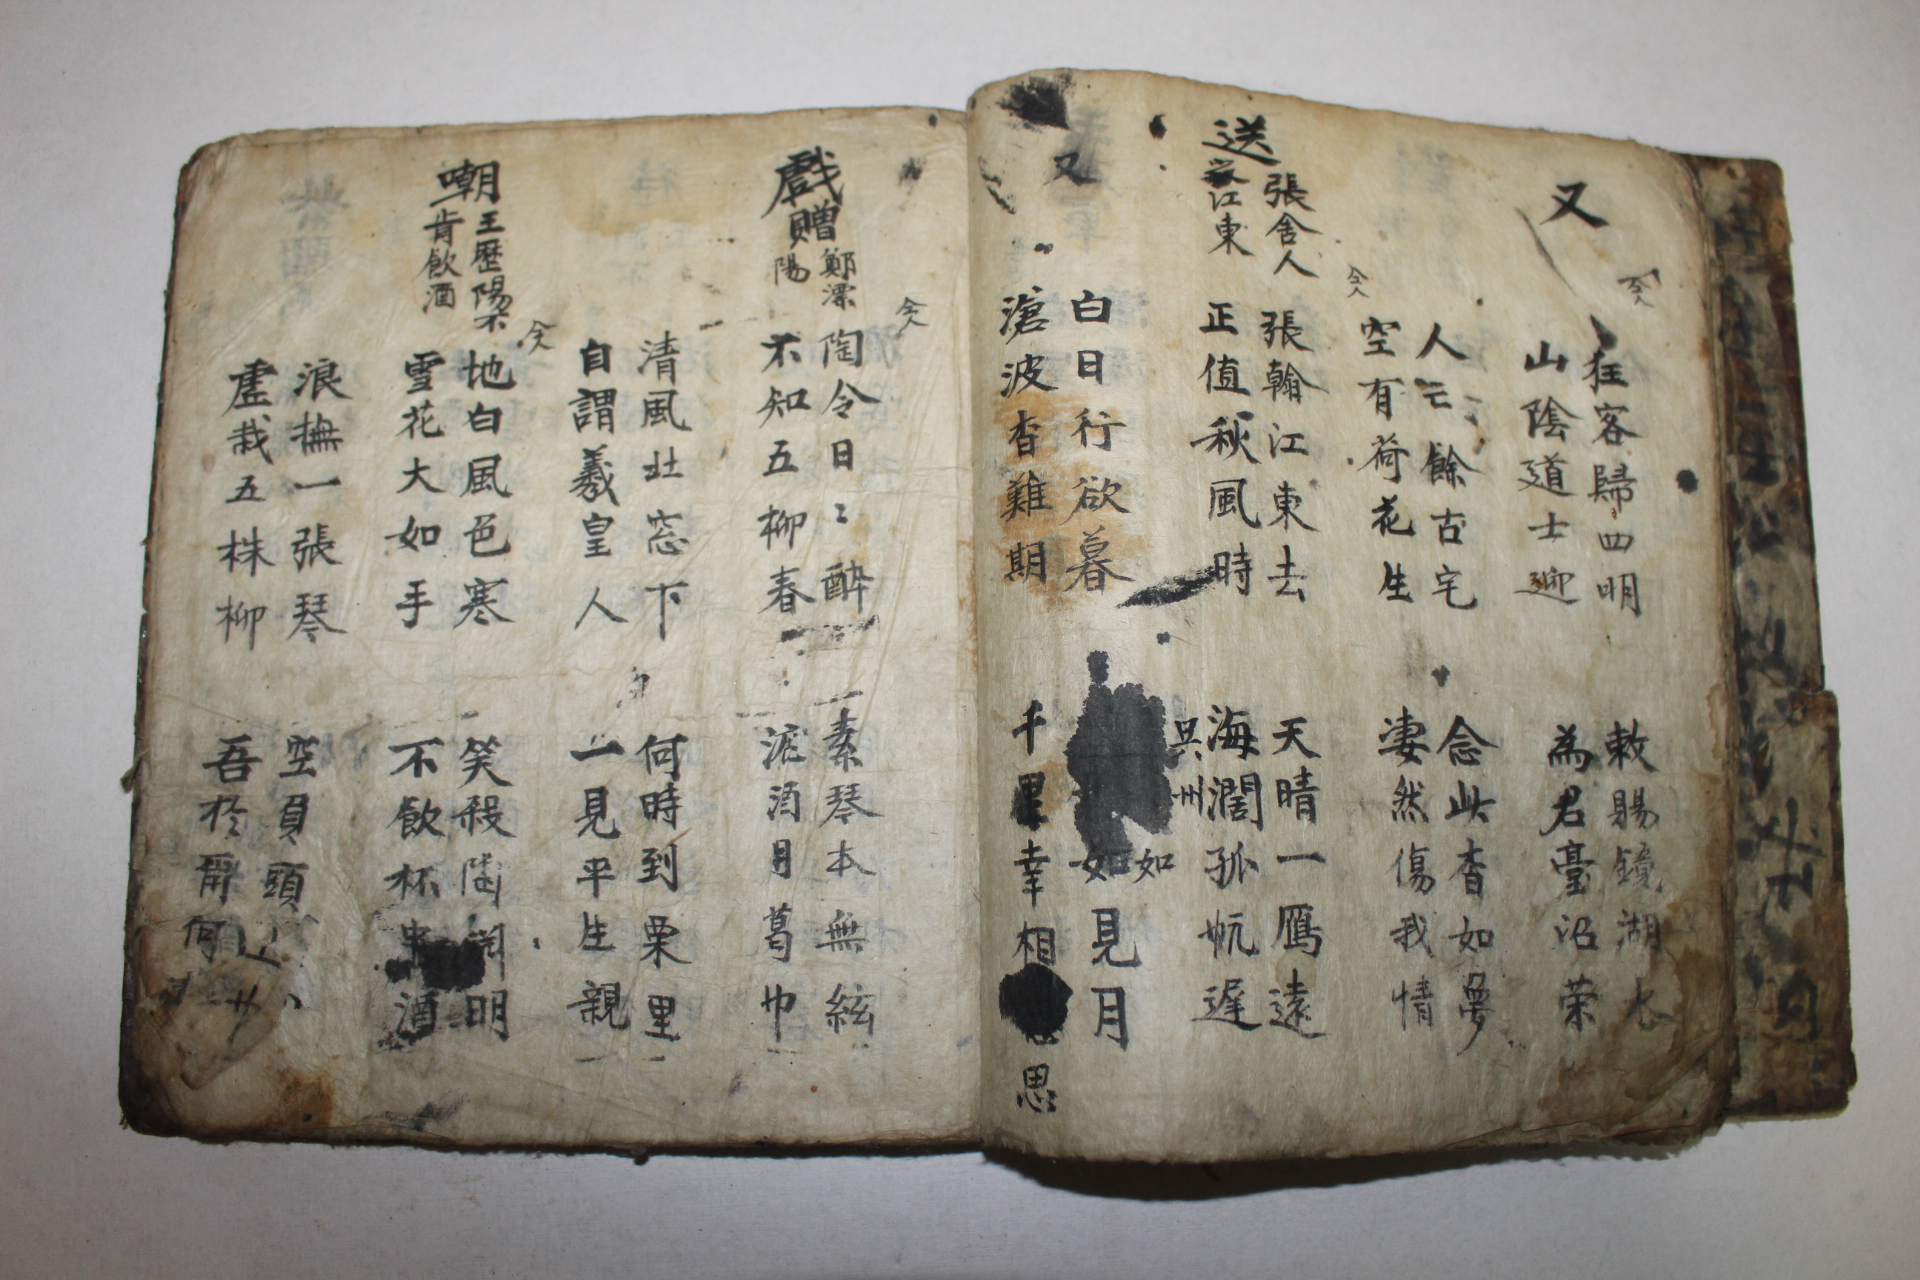 又
狂客歸四明
山陰道士迎
敕賜鏡湖水
為君臺沼荣
人亡餘古宅
空有荷花生
念此杳如夢
凄然傷我情
送
張舍人
之江東
張翰江東去
正值秋風時
天晴一鴈遠
海濶孤帆遲
白日行欲暮
滄波杳難期
吳州
如見月
如
千里幸相思
戲贈鄭溧陽
陶令日〻醉
不知五柳春
素琴本無絃
漉酒用葛巾
清風北窓下
自謂羲皇人
何時到栗里
一見平生親
嘲王歷陽不
肯飲酒
地白風色寒
雪花大如手
笑殺陶淵明
不飲杯中酒
浪撫一張琴
虛栽五株柳
空負頭上
吾於爾何